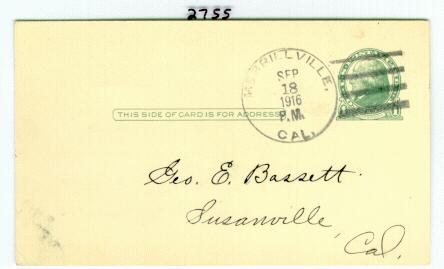 2755
MERRILLVILLE,
SEP
18
1916
P.M.
CAL.
THIS SIDE OF CARD IS FOR ADDRESS
Geo. E. Bassett.
Susanville,
Cal.